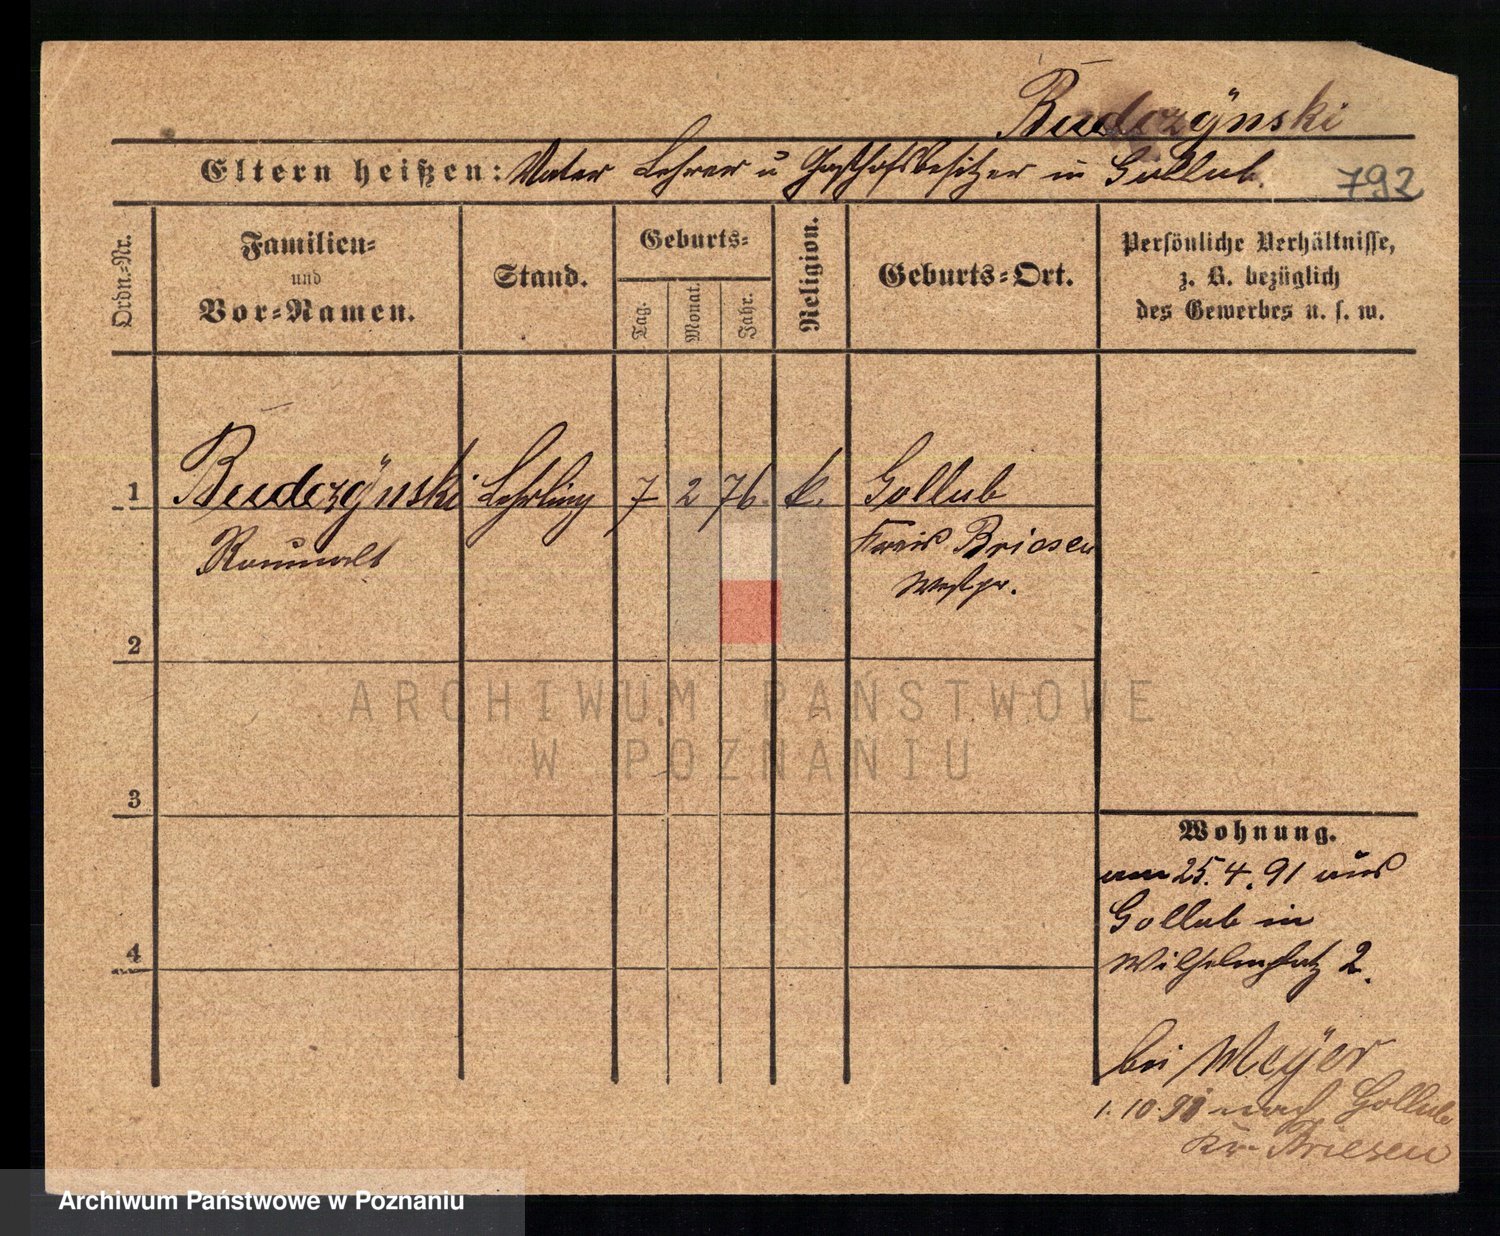 Budczÿnski
Eltern heißen: Vater Lehrer u Gasthofsbesitzer in Gollub.
792
Ordn.=Nr.
Familien=
und
Vor=Namen.
Stand.
Geburts=
Tag.
Monat.
Jahr.
Religion.
Geburts=Ort.
Persönliche Verhältnisse,
z. B. bezüglich
des Gewerbes u. s. w.
1 Budczÿnski Lehrling 7 2 76. k. Gollub
Kreis Briesen
Westpr.
2
ARCHIWUM PAŃSTWOWE
W POZNANIU
3
4
Wohnung.
am 25. 4. 91 aus
Gollub in
Wilhelmplatz 2.
bei Meÿer
1. 10. 91 nach Gollub
Kr. Briesen
Archiwum Państwowe w Poznaniu